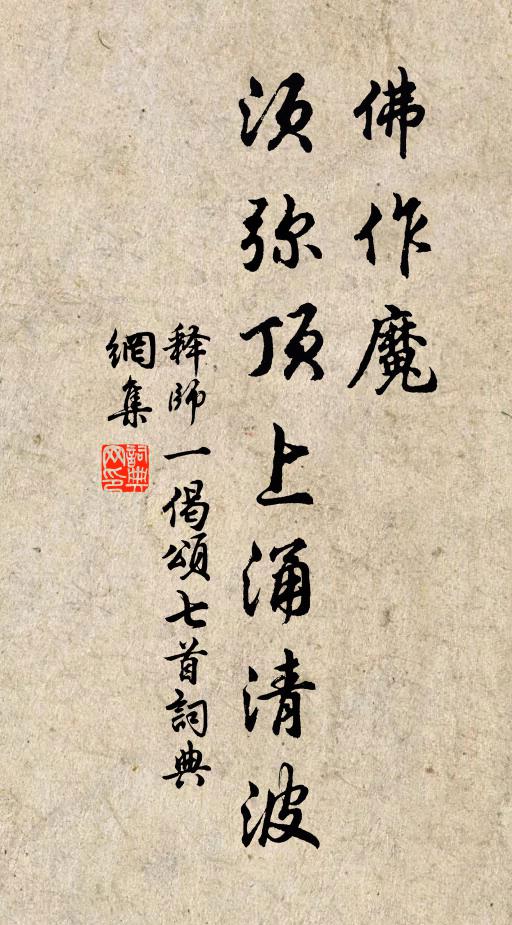 佛作魔
须弥顶上涌清波
释师一偈颂七首詞典
網集
詞典網印